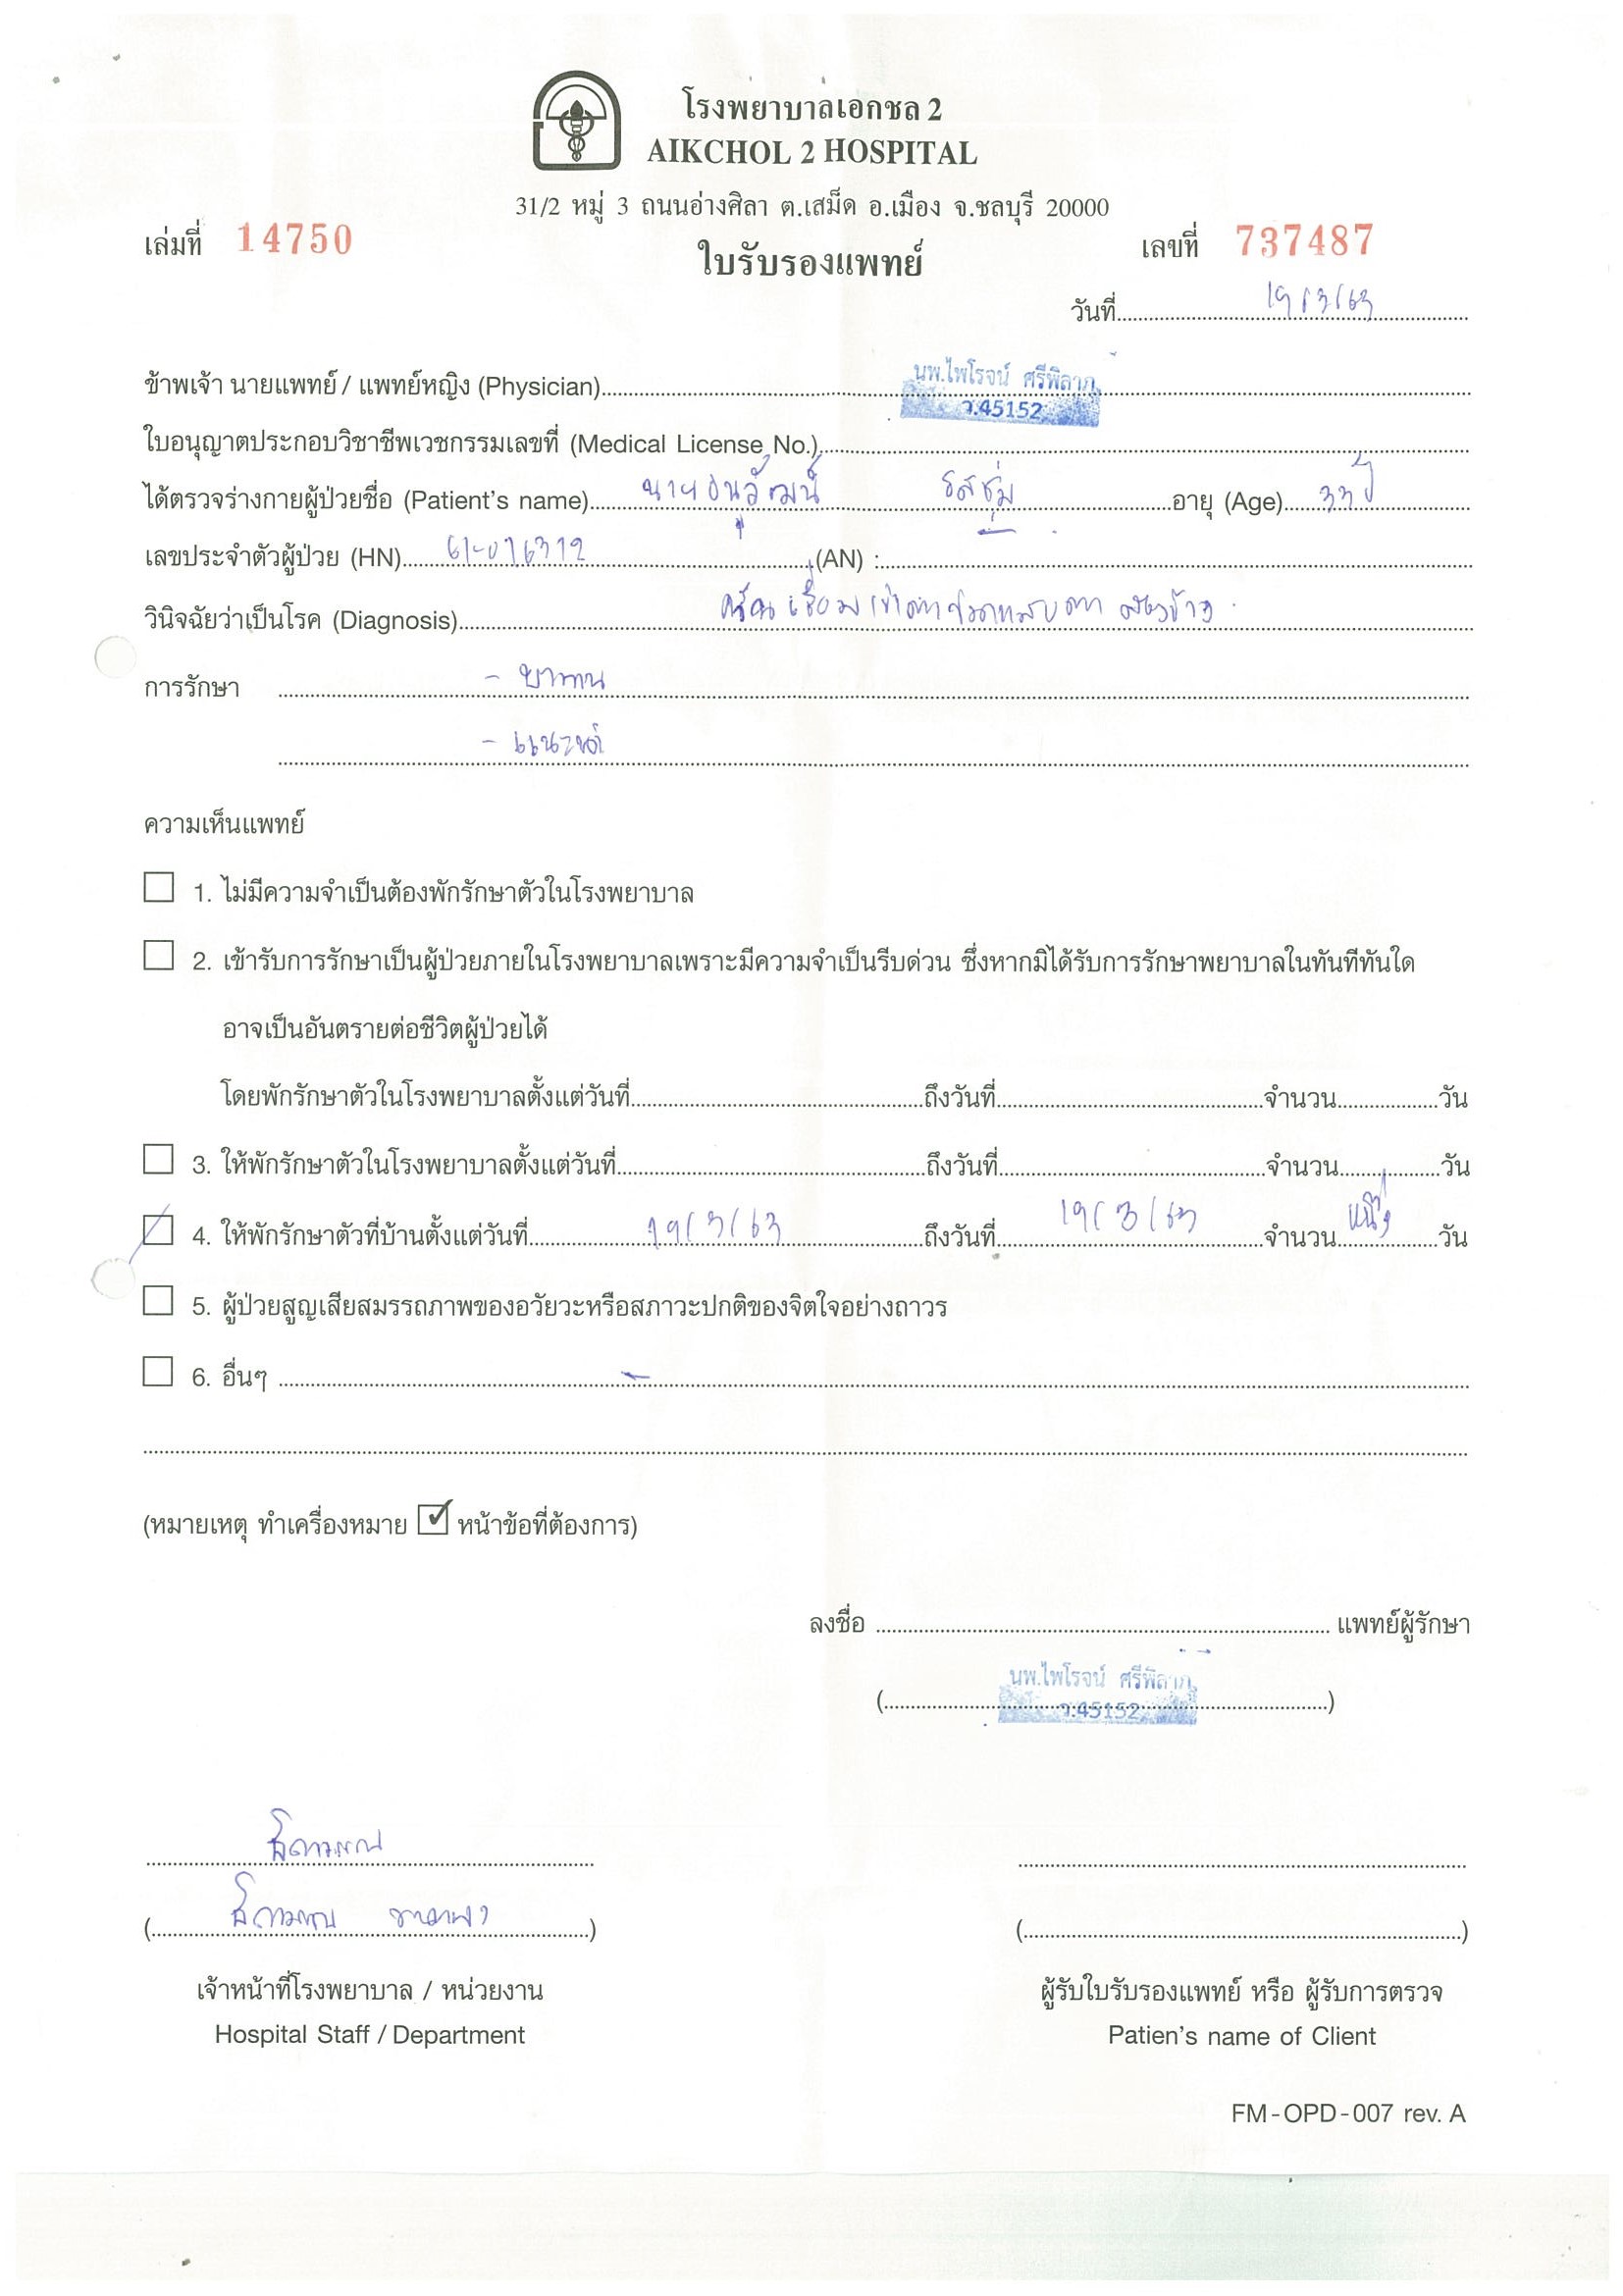 โรงพยาบาลเอกชล 2
AIKCHOL 2 HOSPITAL
31/2 หมู่ 3 ถนนอ่างศิลา ต.เสม็ด อ.เมือง จ.ชลบุรี 20000
เล่มที่ 14750 เลขที่ 737487
ใบรับรองแพทย์
วันที่ 19/3/63
ข้าพเจ้า นายแพทย์ / แพทย์หญิง (Physician) นพ.ไพโรจน์ ศรีพิลาภ
ว.45152
ใบอนุญาตประกอบวิชาชีพเวชกรรมเลขที่ (Medical License No.)
ได้ตรวจร่างกายผู้ป่วยชื่อ (Patient's name) นายอนุวัฒน์ รสชุ่ม อายุ (Age) 33 ปี
เลขประจำตัวผู้ป่วย (HN) 61-016312 (AN) :
วินิจฉัยว่าเป็นโรค (Diagnosis) เชื่อมเข้าตา ตา สองข้าง
การรักษา - ยาทาน
- แนะนำ
ความเห็นแพทย์
1. ไม่มีความจำเป็นต้องพักรักษาตัวในโรงพยาบาล
2. เข้ารับการรักษาเป็นผู้ป่วยภายในโรงพยาบาลเพราะมีความจำเป็นรีบด่วน ซึ่งหากมิได้รับการรักษาพยาบาลในทันทีทันใด
อาจเป็นอันตรายต่อชีวิตผู้ป่วยได้
โดยพักรักษาตัวในโรงพยาบาลตั้งแต่วันที่ ถึงวันที่ จำนวน วัน
3. ให้พักรักษาตัวในโรงพยาบาลตั้งแต่วันที่ ถึงวันที่ จำนวน วัน
4. ให้พักรักษาตัวที่บ้านตั้งแต่วันที่ 19/3/63 ถึงวันที่ 19/3/63 จำนวน หนึ่ง วัน
5. ผู้ป่วยสูญเสียสมรรถภาพของอวัยวะหรือสภาวะปกติของจิตใจอย่างถาวร
6. อื่นๆ -
(หมายเหตุ ทำเครื่องหมาย ✓ หน้าข้อที่ต้องการ)
ลงชื่อ แพทย์ผู้รักษา
(นพ.ไพโรจน์ ศรีพิลาภ)
ว.45152
เจ้าหน้าที่โรงพยาบาล / หน่วยงาน
Hospital Staff / Department
ผู้รับใบรับรองแพทย์ หรือ ผู้รับการตรวจ
Patien's name of Client
FM-OPD-007 rev. A